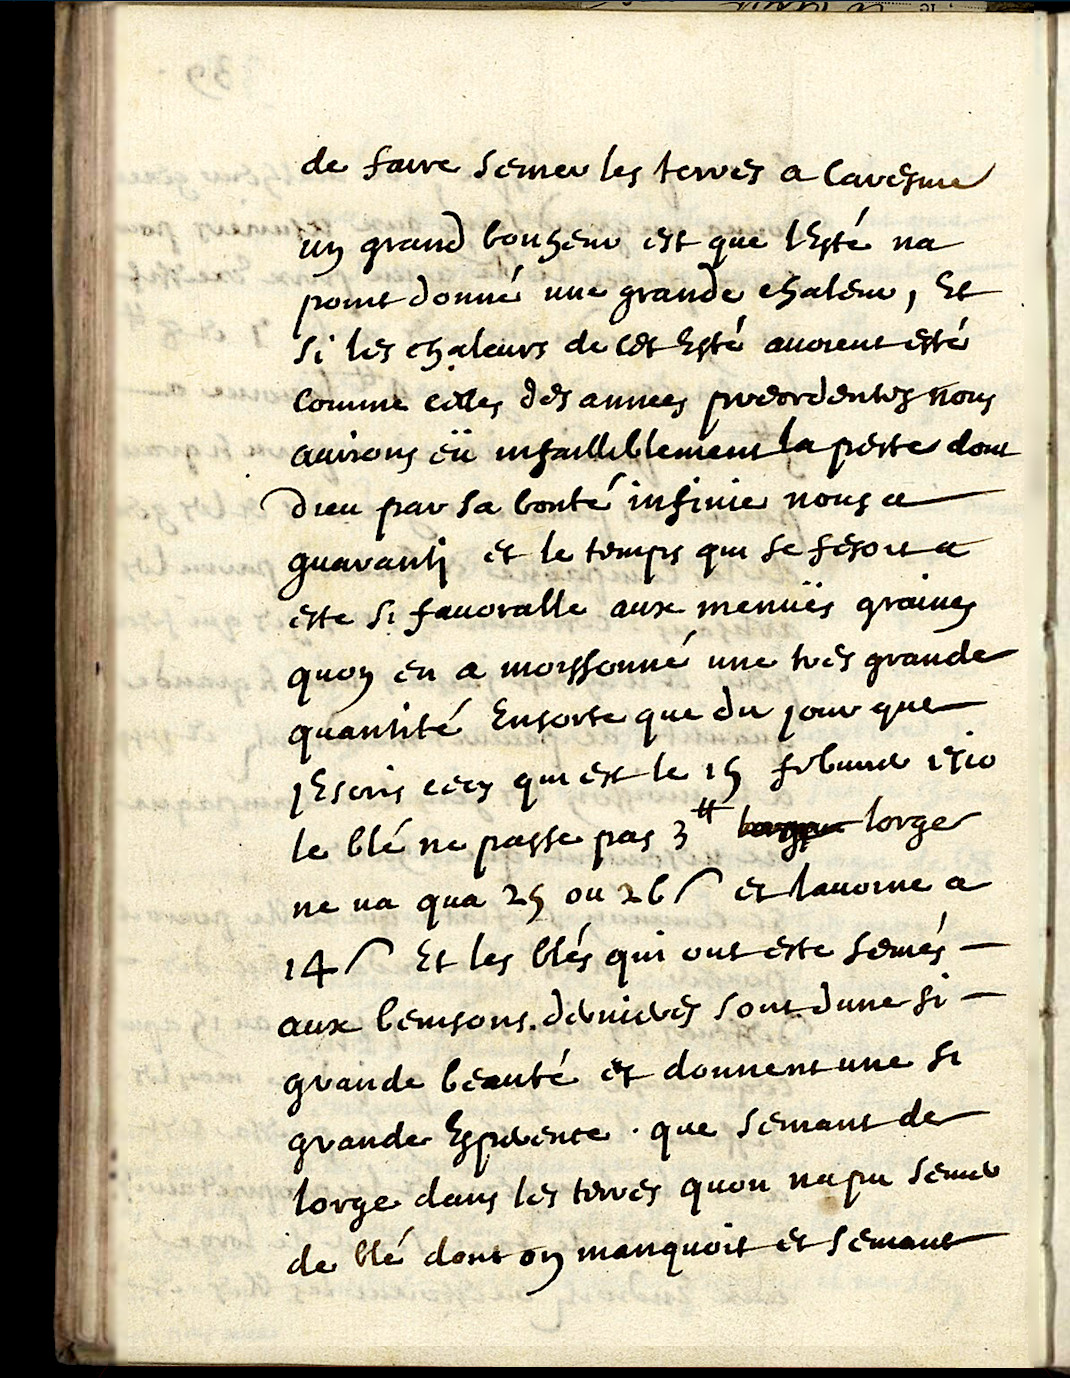 de faire semer les terres a Caresme
un grand bonheur est que lEsté na
point donné une grande chaleur, Et
si les chaleurs de cet Esté avoient esté
Comme celles des années precedentes nous
aurions eü infailliblement la peste dont
Dieu par sa bonté infinie nous a
guaranti et le temps qui se fesoit a
este si favorable aux menuës graines
quon en a moissonné une tres grande
quantité Ensorte que du jour que
jEscris cecy qui est le 15 febvrier 1710
le blé ne passe pas 3 ₶ lorge
ne va qua 25 ou 26 s et lavoine a
14 s Et les blés qui ont este semés
aux semsons dernieres sont dune si
grande beauté et donnent une si
grande Esperence . que semant de
lorge dans les terres quon na pu semer
de blé dont on manquoit et semant